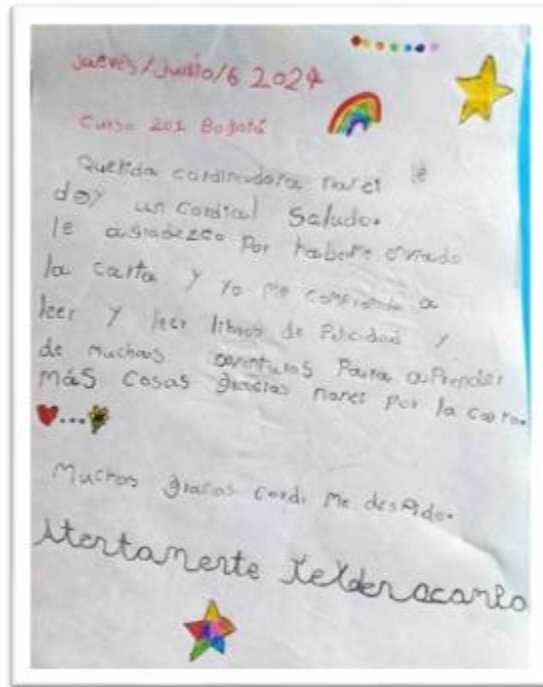 Jueves/Junio/6 2024
Curso 201 Bogotá
Querida cordinadora le
doy un cordial saludo.
le agradezco por haberme enviado
la carta y yo me comprometo a
leer y leer libros de felicidad y
de muchas aventuras para aprender
más cosas gracias por la carta.
Muchas gracias cordi me despido.
Atentamente